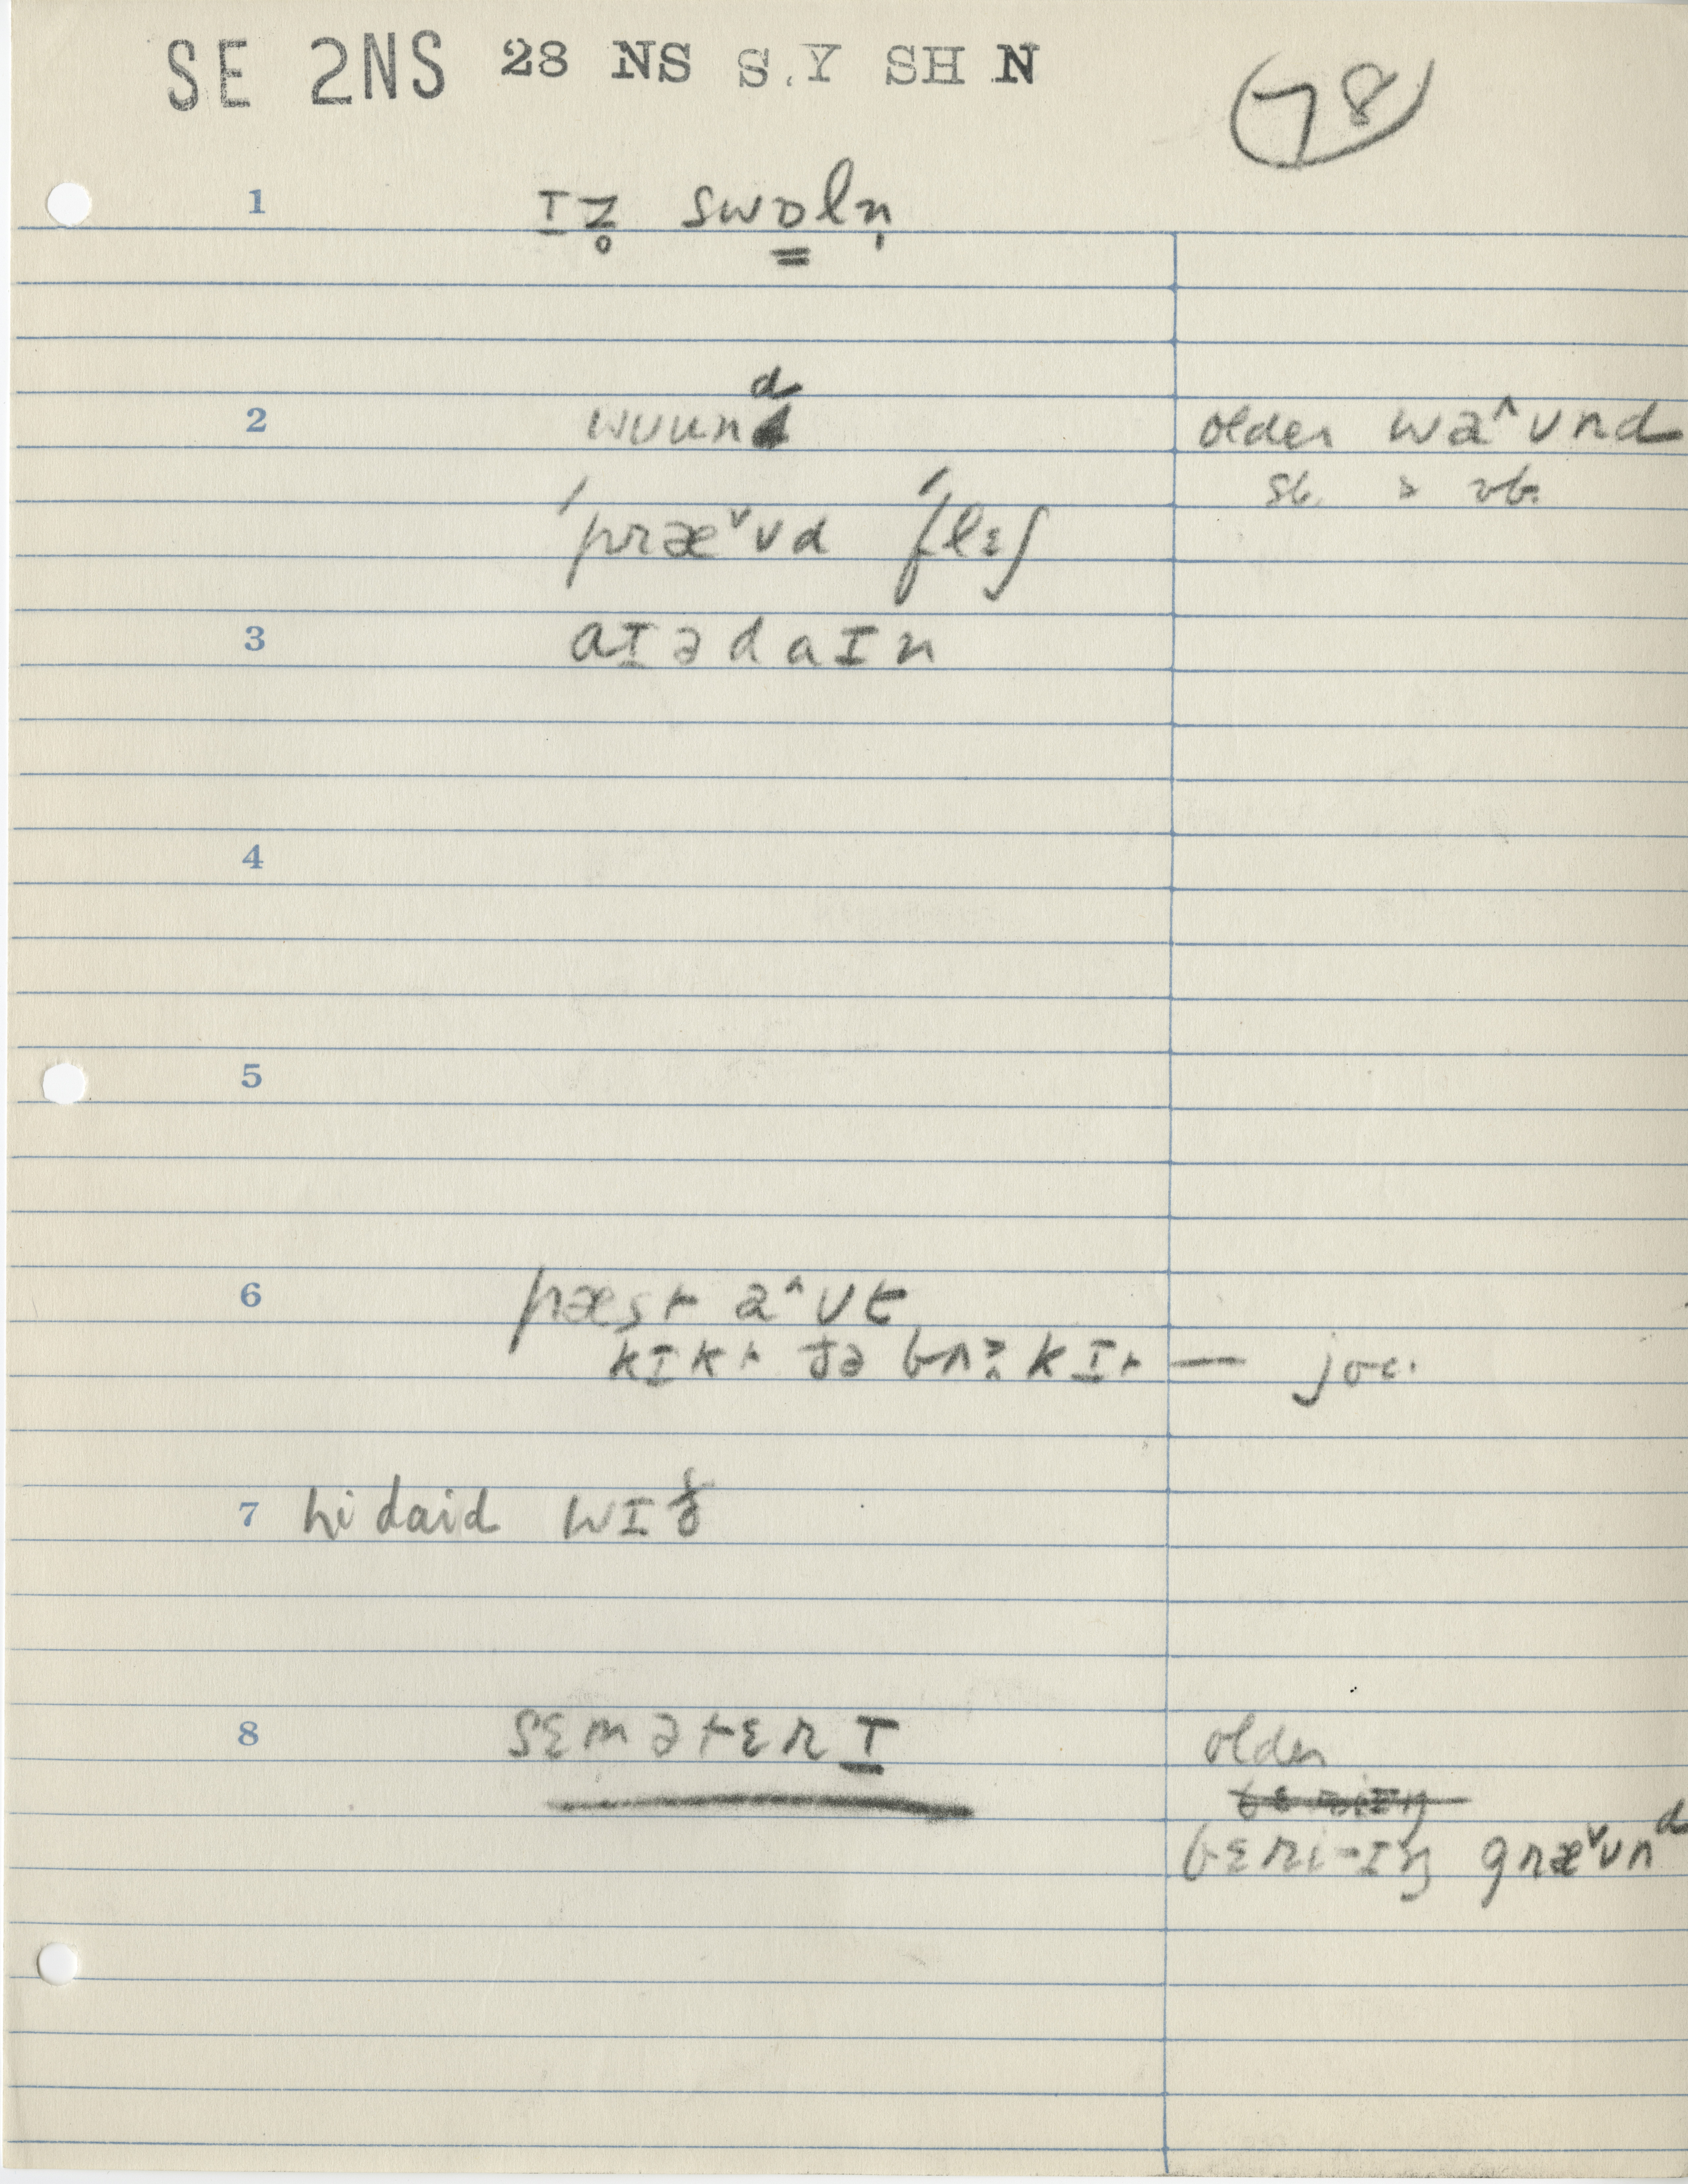 SE 2NS 28 NS S.Y SH N
78
1 ɪz̥ swɒln̩
2 wuund older wa^ʊnd
sb. & vb.
ˈpræˇʊd ˈflɛʃ
3 aɪədaɪn
4
5
6 pæst a^ʊt
kɪkt ðə bʌkɪt — joc.
7 hi daid wɪð
8 sɛmətɛrɪ older
bɛri-ɪŋ græˇʊnd